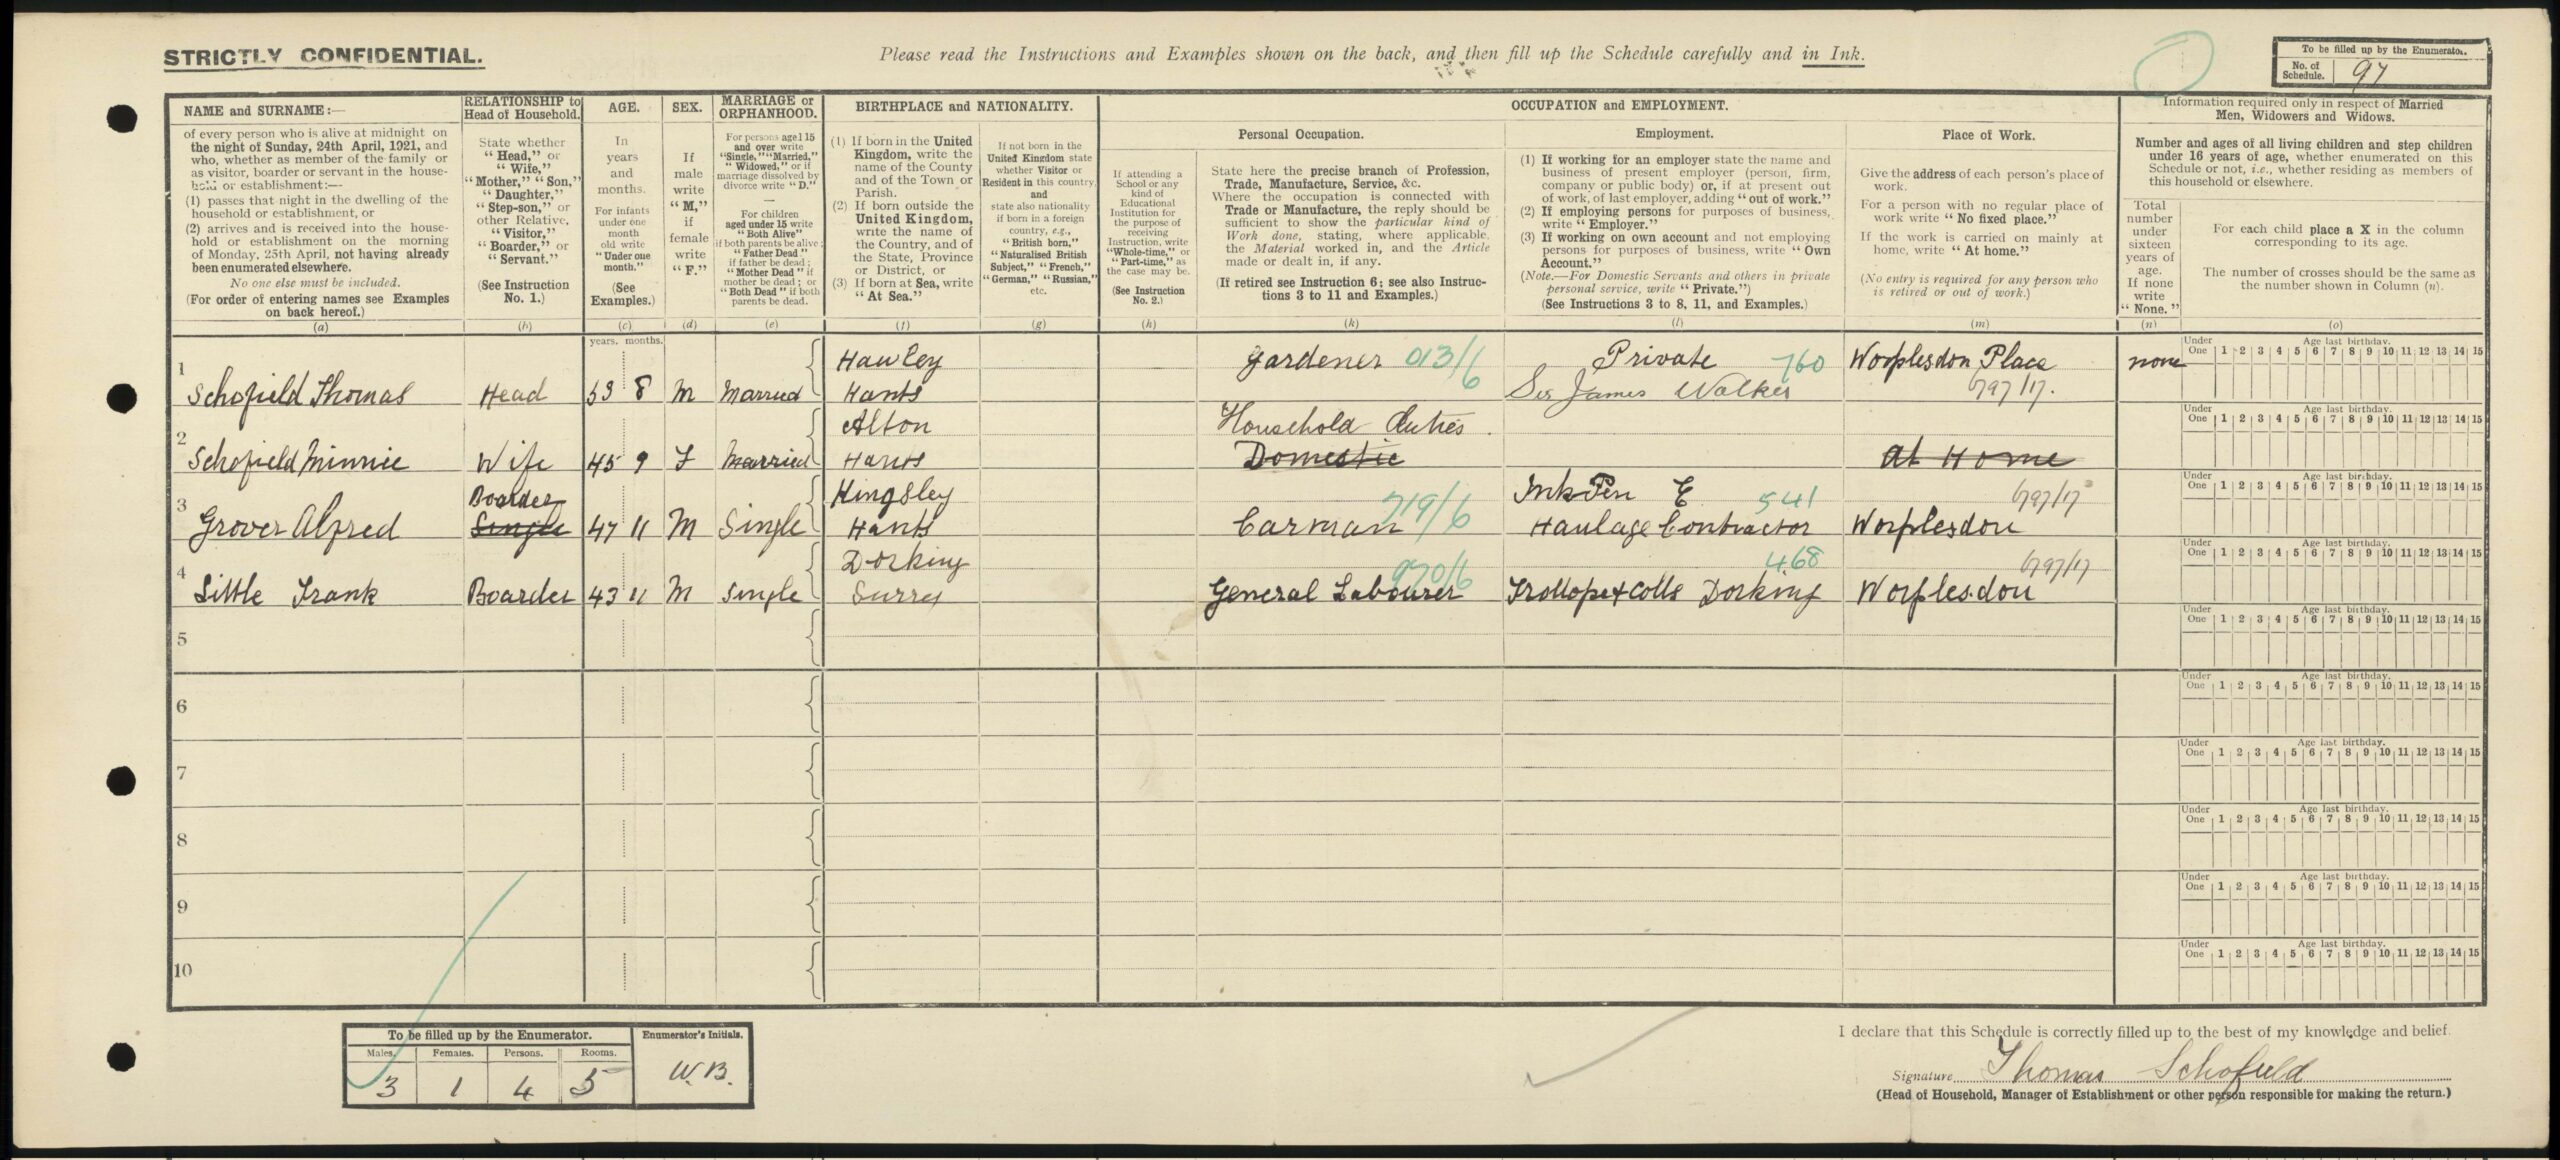 STRICTLY CONFIDENTIAL.
Please read the Instructions and Examples shown on the back, and then fill up the Schedule carefully and in Ink.
To be filled up by the Enumerator.
No. of Schedule. 97
NAME and SURNAME:—
of every person who is alive at midnight on
the night of Sunday, 24th April, 1921, and
who, whether as member of the family or
as visitor, boarder or servant in the house-
hold or establishment:—
(1) passes that night in the dwelling of the
household or establishment, or
(2) arrives and is received into the house-
hold or establishment on the morning
of Monday, 25th April, not having already
been enumerated elsewhere.
No one else must be included.
(For order of entering names see Examples
on back hereof.)
(a)
RELATIONSHIP to
Head of Household.
State whether
"Head," or
"Wife,"
"Mother," "Son,"
"Daughter,"
"Step-son," or
other Relative,
"Visitor,"
"Boarder," or
"Servant."
(See Instruction
No. 1.)
(b)
AGE.
In
years
and
months.
For infants
under one
month
old write
"Under one
month."
(See
Examples.)
(c)
SEX.
If
male
write
"M,"
if
female
write
"F."
(d)
MARRIAGE or
ORPHANHOOD.
For persons aged 15
and over write
"Single," "Married,"
"Widowed," or if
marriage dissolved by
divorce write "D."
For children
aged under 15 write
"Both Alive"
if both parents be alive;
"Father Dead"
if father be dead;
"Mother Dead" if
mother be dead; or
"Both Dead" if both
parents be dead.
(e)
BIRTHPLACE and NATIONALITY.
(1) If born in the United
Kingdom, write the
name of the County
and of the Town or
Parish.
(2) If born outside the
United Kingdom,
write the name of
the Country, and of
the State, Province
or District, or
(3) If born at Sea, write
"At Sea."
(f)
If not born in the
United Kingdom state
whether Visitor or
Resident in this country,
and
state also nationality
if born in a foreign
country, e.g.,
"British born,"
"Naturalised British
Subject," "French,"
"German," "Russian,"
etc.
(g)
OCCUPATION and EMPLOYMENT.
If attending a
School or any
kind of
Educational
Institution for
the purpose of
receiving
Instruction, write
"Whole-time," or
"Part-time," as
the case may be.
(See Instruction
No. 2.)
(h)
Personal Occupation.
State here the precise branch of Profession,
Trade, Manufacture, Service, &c.
Where the occupation is connected with
Trade or Manufacture, the reply should be
sufficient to show the particular kind of
Work done, stating, where applicable,
the Material worked in, and the Article
made or dealt in, if any.
(If retired see Instruction 6; see also Instruc-
tions 3 to 11 and Examples.)
(k)
Employment.
(1) If working for an employer state the name and
business of present employer (person, firm,
company or public body) or, if at present out
of work, of last employer, adding "out of work."
(2) If employing persons for purposes of business,
write "Employer."
(3) If working on own account and not employing
persons for purposes of business, write "Own
Account."
(Note.—For Domestic Servants and others in private
personal service, write "Private.")
(See Instructions 3 to 8, 11, and Examples.)
(l)
Place of Work.
Give the address of each person's place of
work.
For a person with no regular place of
work write "No fixed place."
If the work is carried on mainly at
home, write "At home."
(No entry is required for any person who
is retired or out of work.)
(m)
Information required only in respect of Married
Men, Widowers and Widows.
Number and ages of all living children and step children
under 16 years of age, whether enumerated on this
Schedule or not, i.e., whether residing as members of
this household or elsewhere.
Total
number
under
sixteen
years of
age.
If none
write
"None."
(n)
For each child place a X in the column
corresponding to its age.
The number of crosses should be the same as
the number shown in Column (n).
(o)
years. months.
1 Schofield Thomas Head 53 8 M Married Hawley Hants Gardener 013/6 Private 760 Sir James Walker Worplesdon Place 797/17. none
Under One Age last birthday. 1 2 3 4 5 6 7 8 9 10 11 12 13 14 15
2 Schofield Minnie Wife 45 9 F Married Alton Hants Household duties. Domestic At Home
Under One Age last birthday. 1 2 3 4 5 6 7 8 9 10 11 12 13 14 15
3 Grover Alfred Boarder Single 47 11 M Single Kingsley Hants Carman 719/6 Ink Pen E 541 Haulage Contractor Worplesdon 797/17
Under One Age last birthday. 1 2 3 4 5 6 7 8 9 10 11 12 13 14 15
4 Little Frank Boarder 43 11 M Single Dorking Surrey General Labourer 970/6 Trollope & Colls Dorking 468 Worplesdon 797/17
Under One Age last birthday. 1 2 3 4 5 6 7 8 9 10 11 12 13 14 15
5
Under One Age last birthday. 1 2 3 4 5 6 7 8 9 10 11 12 13 14 15
6
Under One Age last birthday. 1 2 3 4 5 6 7 8 9 10 11 12 13 14 15
7
Under One Age last birthday. 1 2 3 4 5 6 7 8 9 10 11 12 13 14 15
8
Under One Age last birthday. 1 2 3 4 5 6 7 8 9 10 11 12 13 14 15
9
Under One Age last birthday. 1 2 3 4 5 6 7 8 9 10 11 12 13 14 15
10
Under One Age last birthday. 1 2 3 4 5 6 7 8 9 10 11 12 13 14 15
To be filled up by the Enumerator.
Males. Females. Persons. Rooms.
3 1 4 5
Enumerator's Initials.
W.B.
I declare that this Schedule is correctly filled up to the best of my knowledge and belief.
Signature Thomas Schofield
(Head of Household, Manager of Establishment or other person responsible for making the return.)